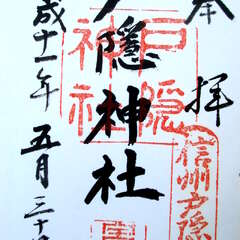 奉拝
信州戸隠
戸隠
神社
隱神社
成十一年五月三十